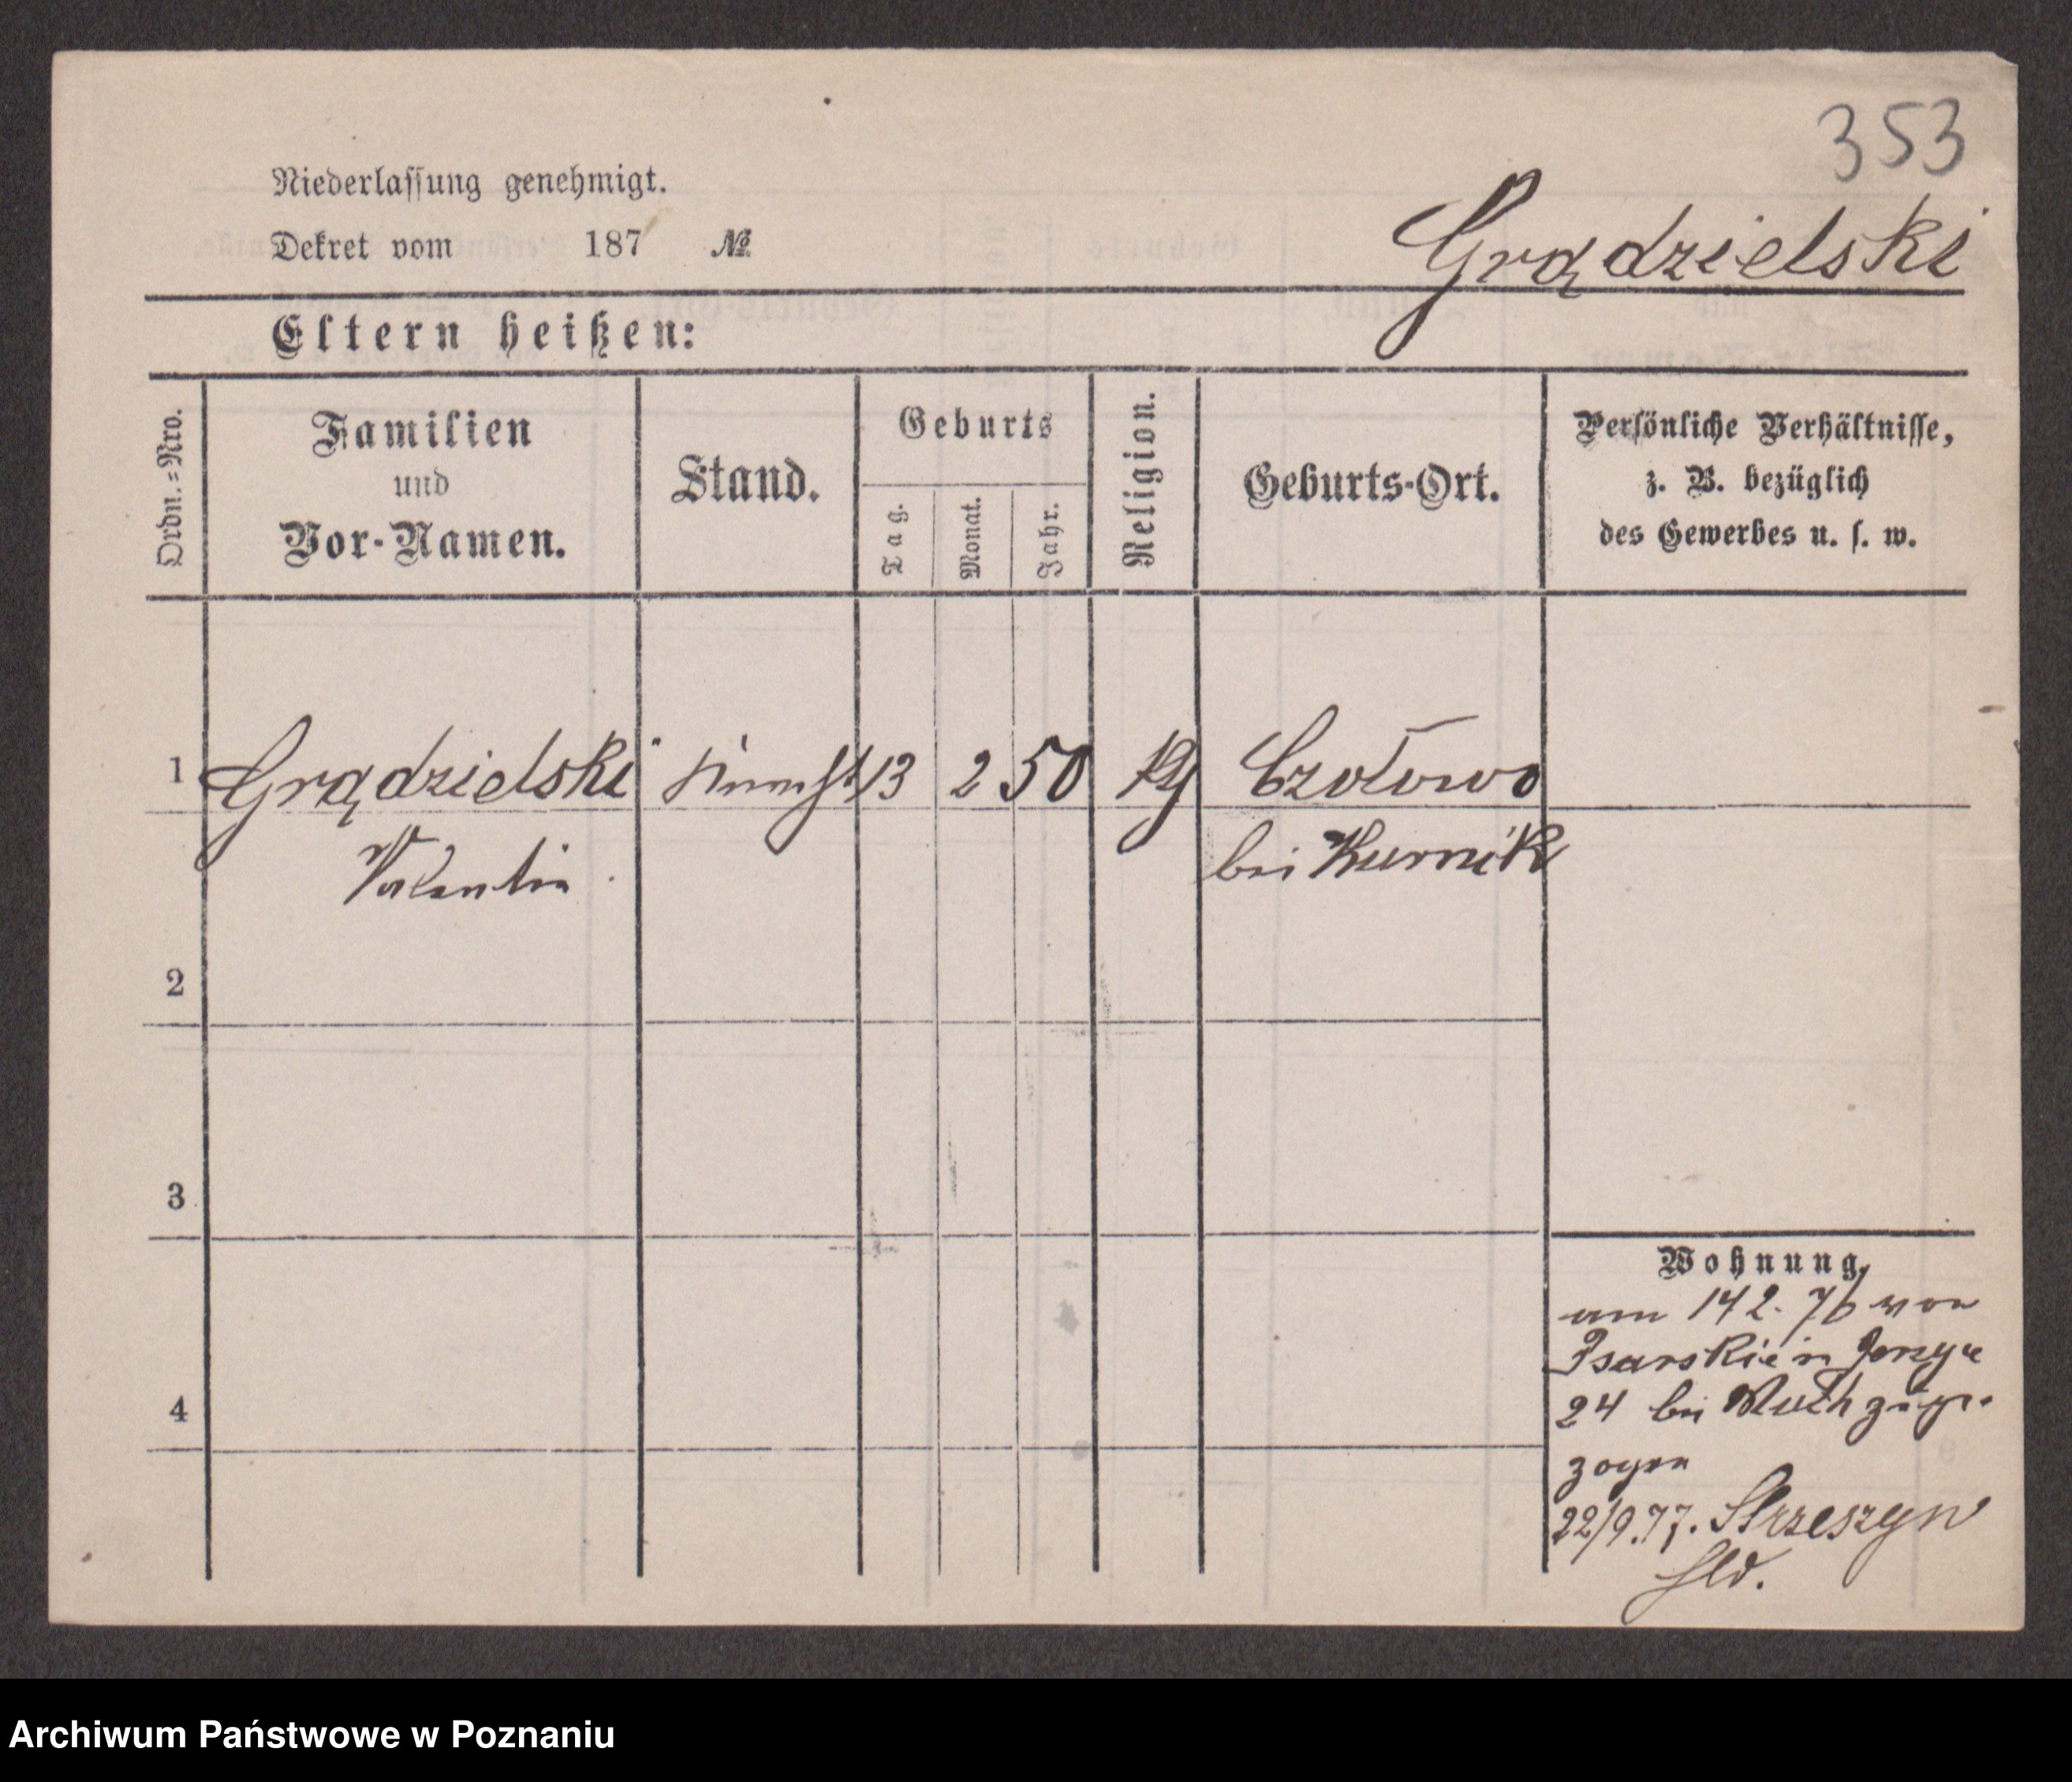 353
Niederlassung genehmigt.
Grądzielski
Dekret vom 187 №
Eltern heißen:
Ordn.=Nro.
Familien
und
Vor-Namen.
Stand.
Geburts
Tag.
Monat.
Jahr.
Religion.
Geburts-Ort.
Persönliche Verhältnisse,
z. B. bezüglich
des Gewerbes u. s. w.
1 Grądzielski 13 2 50 Czołowo
Valentin bei Kurnik
2
3
Wohnung.
am 14 2. 76 von
Psarskie in Jerzyce
24 bei
4
zogen
22/9.77. Strzeszyn
Archiwum Państwowe w Poznaniu